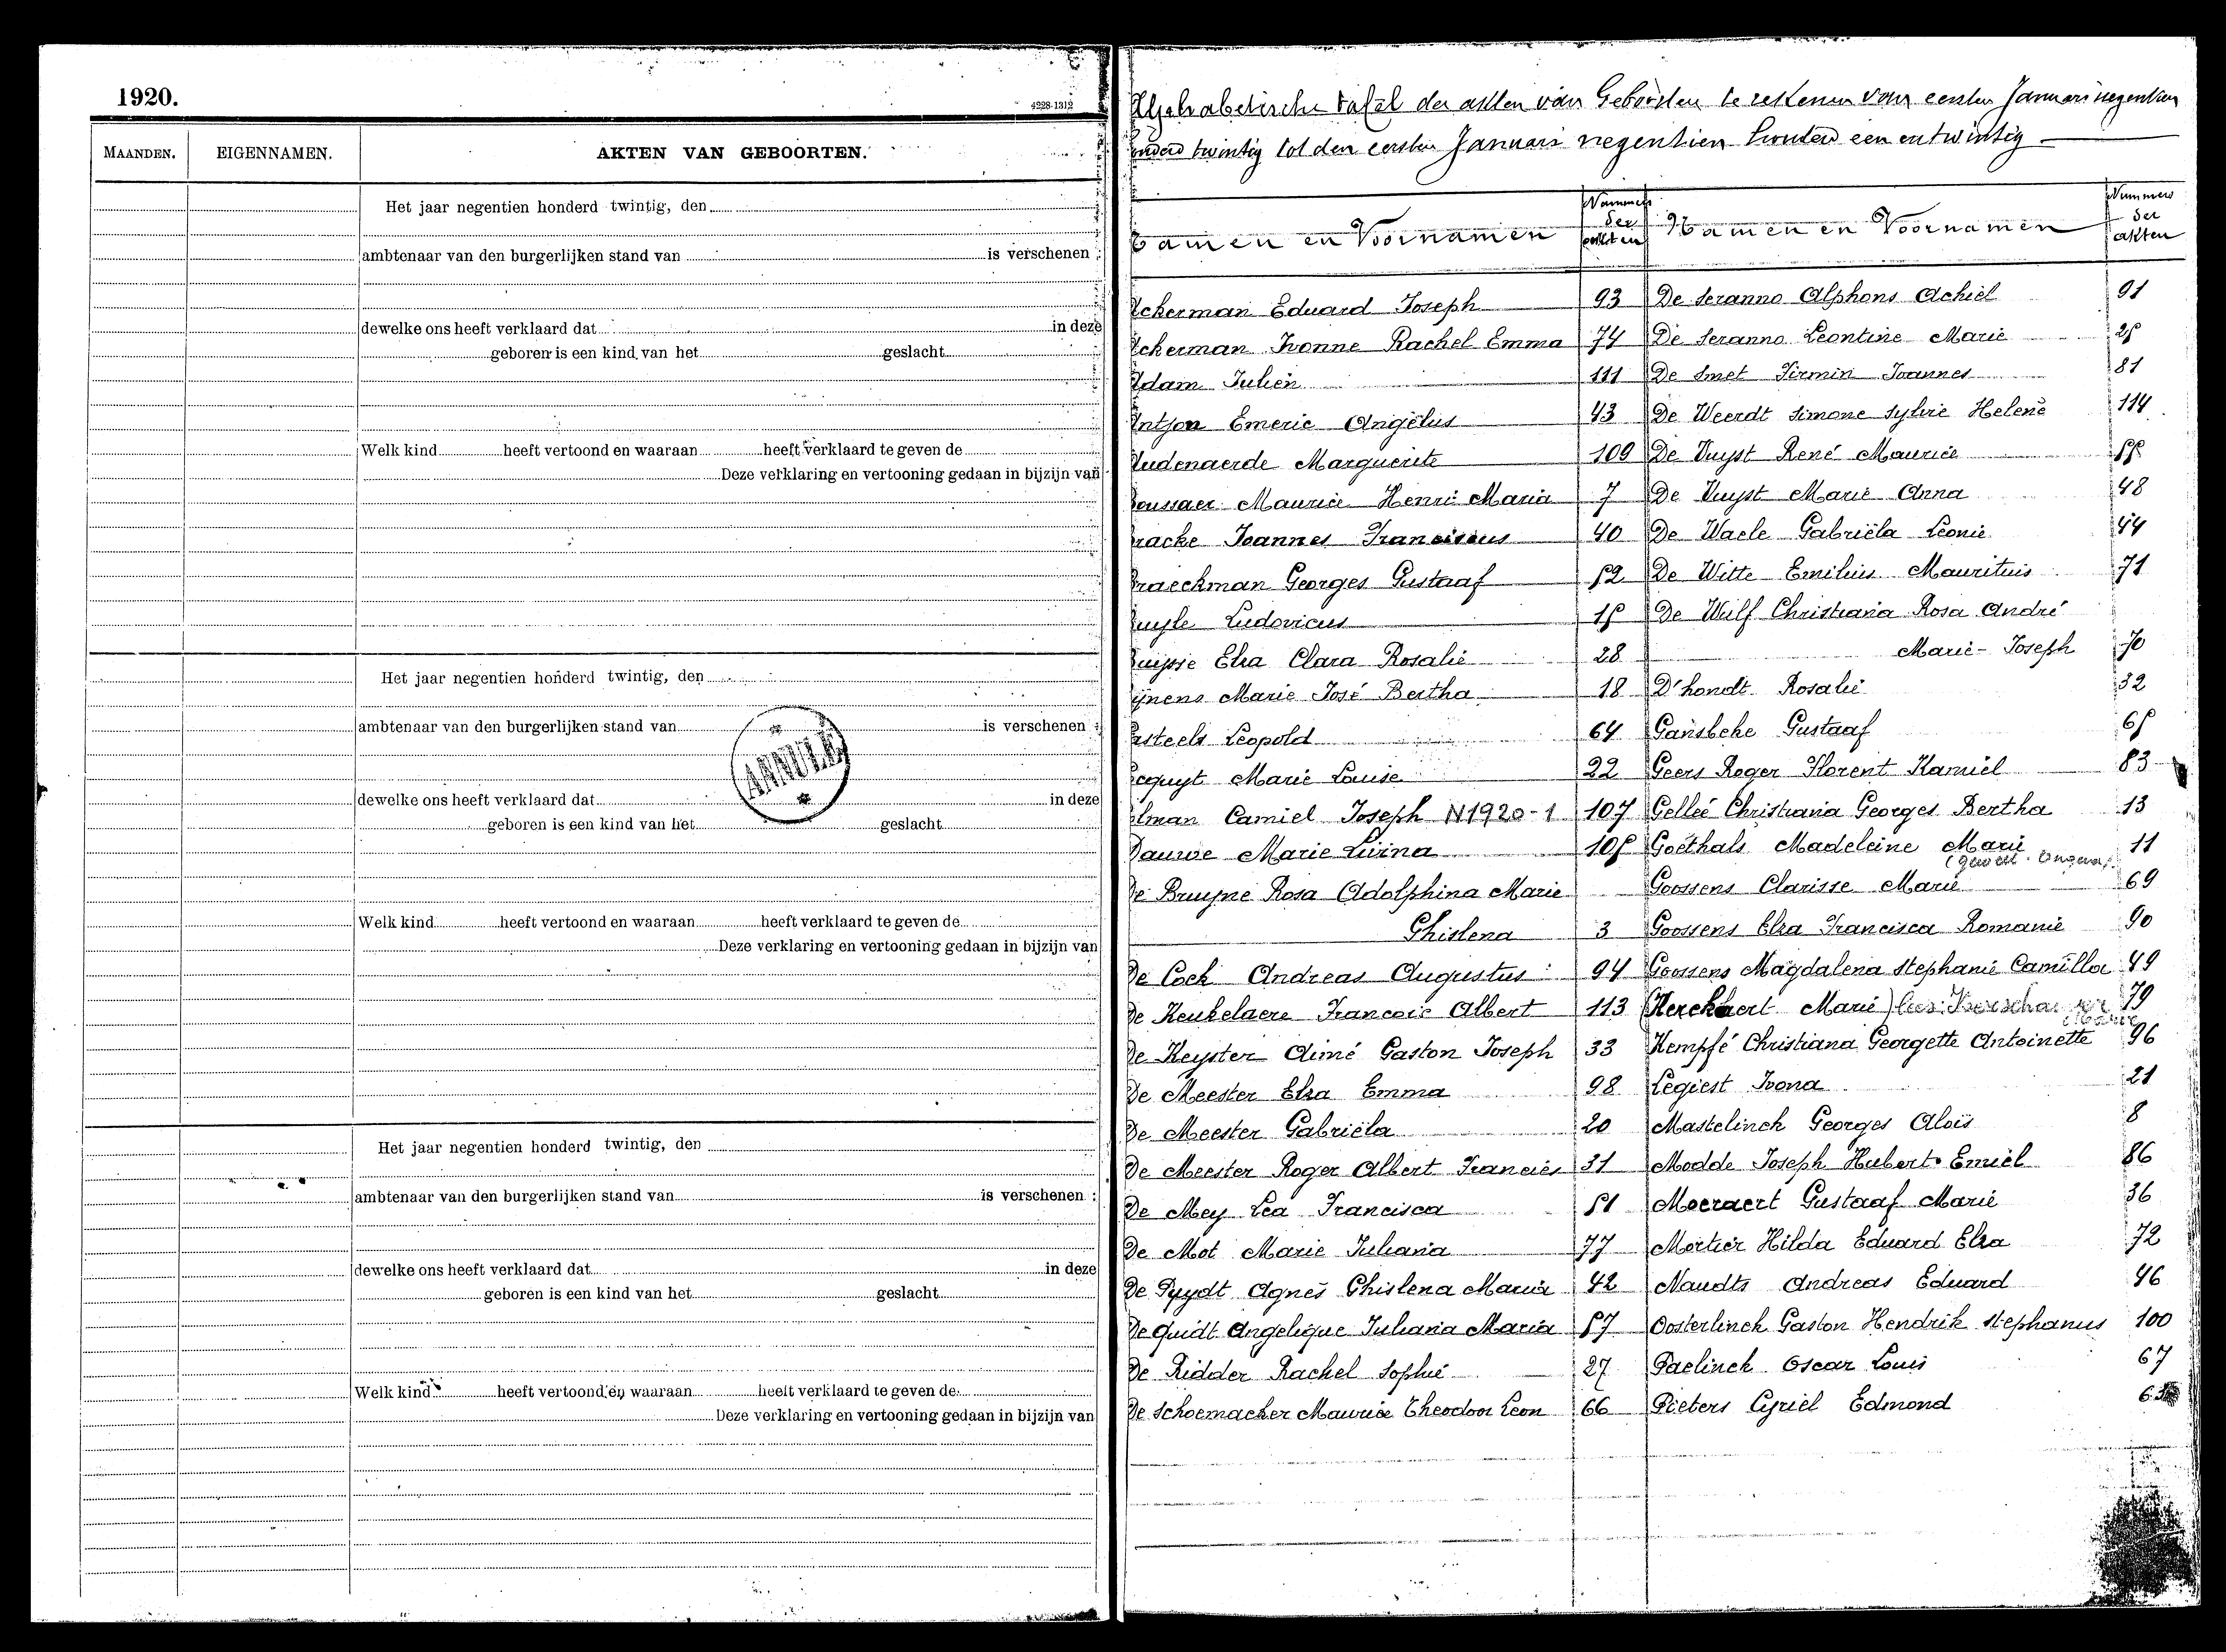 1920.
4228-1312
MAANDEN.
EIGENNAMEN.
AKTEN VAN GEBOORTEN.
Het jaar negentien honderd twintig, den
ambtenaar van den burgerlijken stand van is verschenen :
dewelke ons heeft verklaard dat in deze
geboren is een kind van het geslacht
Welk kind heeft vertoond en waaraan heeft verklaard te geven de
Deze verklaring en vertooning gedaan in bijzijn van
Het jaar negentien honderd twintig, den
ambtenaar van den burgerlijken stand van is verschenen :
ANNULÉ
dewelke ons heeft verklaard dat in deze
geboren is een kind van het geslacht
Welk kind heeft vertoond en waaraan heeft verklaard te geven de
Deze verklaring en vertooning gedaan in bijzijn van
Het jaar negentien honderd twintig, den
ambtenaar van den burgerlijken stand van is verschenen :
dewelke ons heeft verklaard dat in deze
geboren is een kind van het geslacht
Welk kind heeft vertoond en waaraan heeft verklaard te geven de
Deze verklaring en vertooning gedaan in bijzijn van
Alphabetische tafel der akten van Geboorten te rekenen van eersten Januari negentien
onderd twintig tot den eersten Januari negentien honderd een en twintig
Namen en Voornamen
Nummers der akten
ckerman Eduard Joseph 93
ckerman Ivonne Rachel Emma 74
Adam Julien 111
Antjon Emeric Angelus 43
Audenaerde Marguerite 109
oussaer Maurice Henri Maria 7
racke Joannes Franciscus 40
raeckman Georges Gustaaf 52
uyle Ludovicus 15
uysse Elza Clara Rosalie 28
ijnens Marie José Bertha 18
asteels Leopold 64
ocquyt Marie Louise 22
elman Camiel Joseph N1920-1 107
Dauwe Marie Livina 105
De Bruyne Rosa Adolphina Marie
Ghislena 3
De Cock Andreas Augustus 94
De Keukelaere Francois Albert 113
De Keyster Aimé Gaston Joseph 33
De Meester Elza Emma 98
De Meester Gabriëla 20
De Meester Roger Albert Francies 31
De Mey Lea Francisca 51
De Mot Marie Juliana 77
De Puydt Agnes Ghislena Maria 42
De Quidt Angelique Juliana Maria 57
De Ridder Rachel Sophie 27
De Schoemacker Maurice Theodoor Leon 66
Namen en Voornamen
Nummers der akten
De Seranno Alphons Achiel 91
De Seranno Leontine Marie 25
De Smet Firmin Joannes 81
De Weerdt Simone Sylvie Helene 114
De Vuyst René Maurice 55
De Vuyst Marie Anna 48
De Waele Gabriëla Leonie 44
De Witte Emilius Mauritius 71
De Wulf Christiana Rosa André
Marie-Joseph 70
D'hondt Rosalie 32
Gansbeke Gustaaf 65
Geers Roger Florent Kamiel 83
Gelleé Christiana Georges Bertha 13
Goethals Madeleine Marie 11
Goossens Clarisse Marie 69
Goossens Elza Francisca Romanie 90
Goossens Magdalena Stephanie Camilla 49
(Herckaert Marie) lees: 79
Kempfé Christiana Georgette Antoinette 96
Legiest Ivona 21
Mastelinck Georges Aloïs 8
Modde Joseph Hubert Emiel 86
Moeraert Gustaaf Marie 36
Mortier Hilda Eduard Elza 72
Naudts Andreas Eduard 46
Oosterlinck Gaston Hendrik Stephanus 100
Paelinck Oscar Louis 67
Pieters Cyriel Edmond